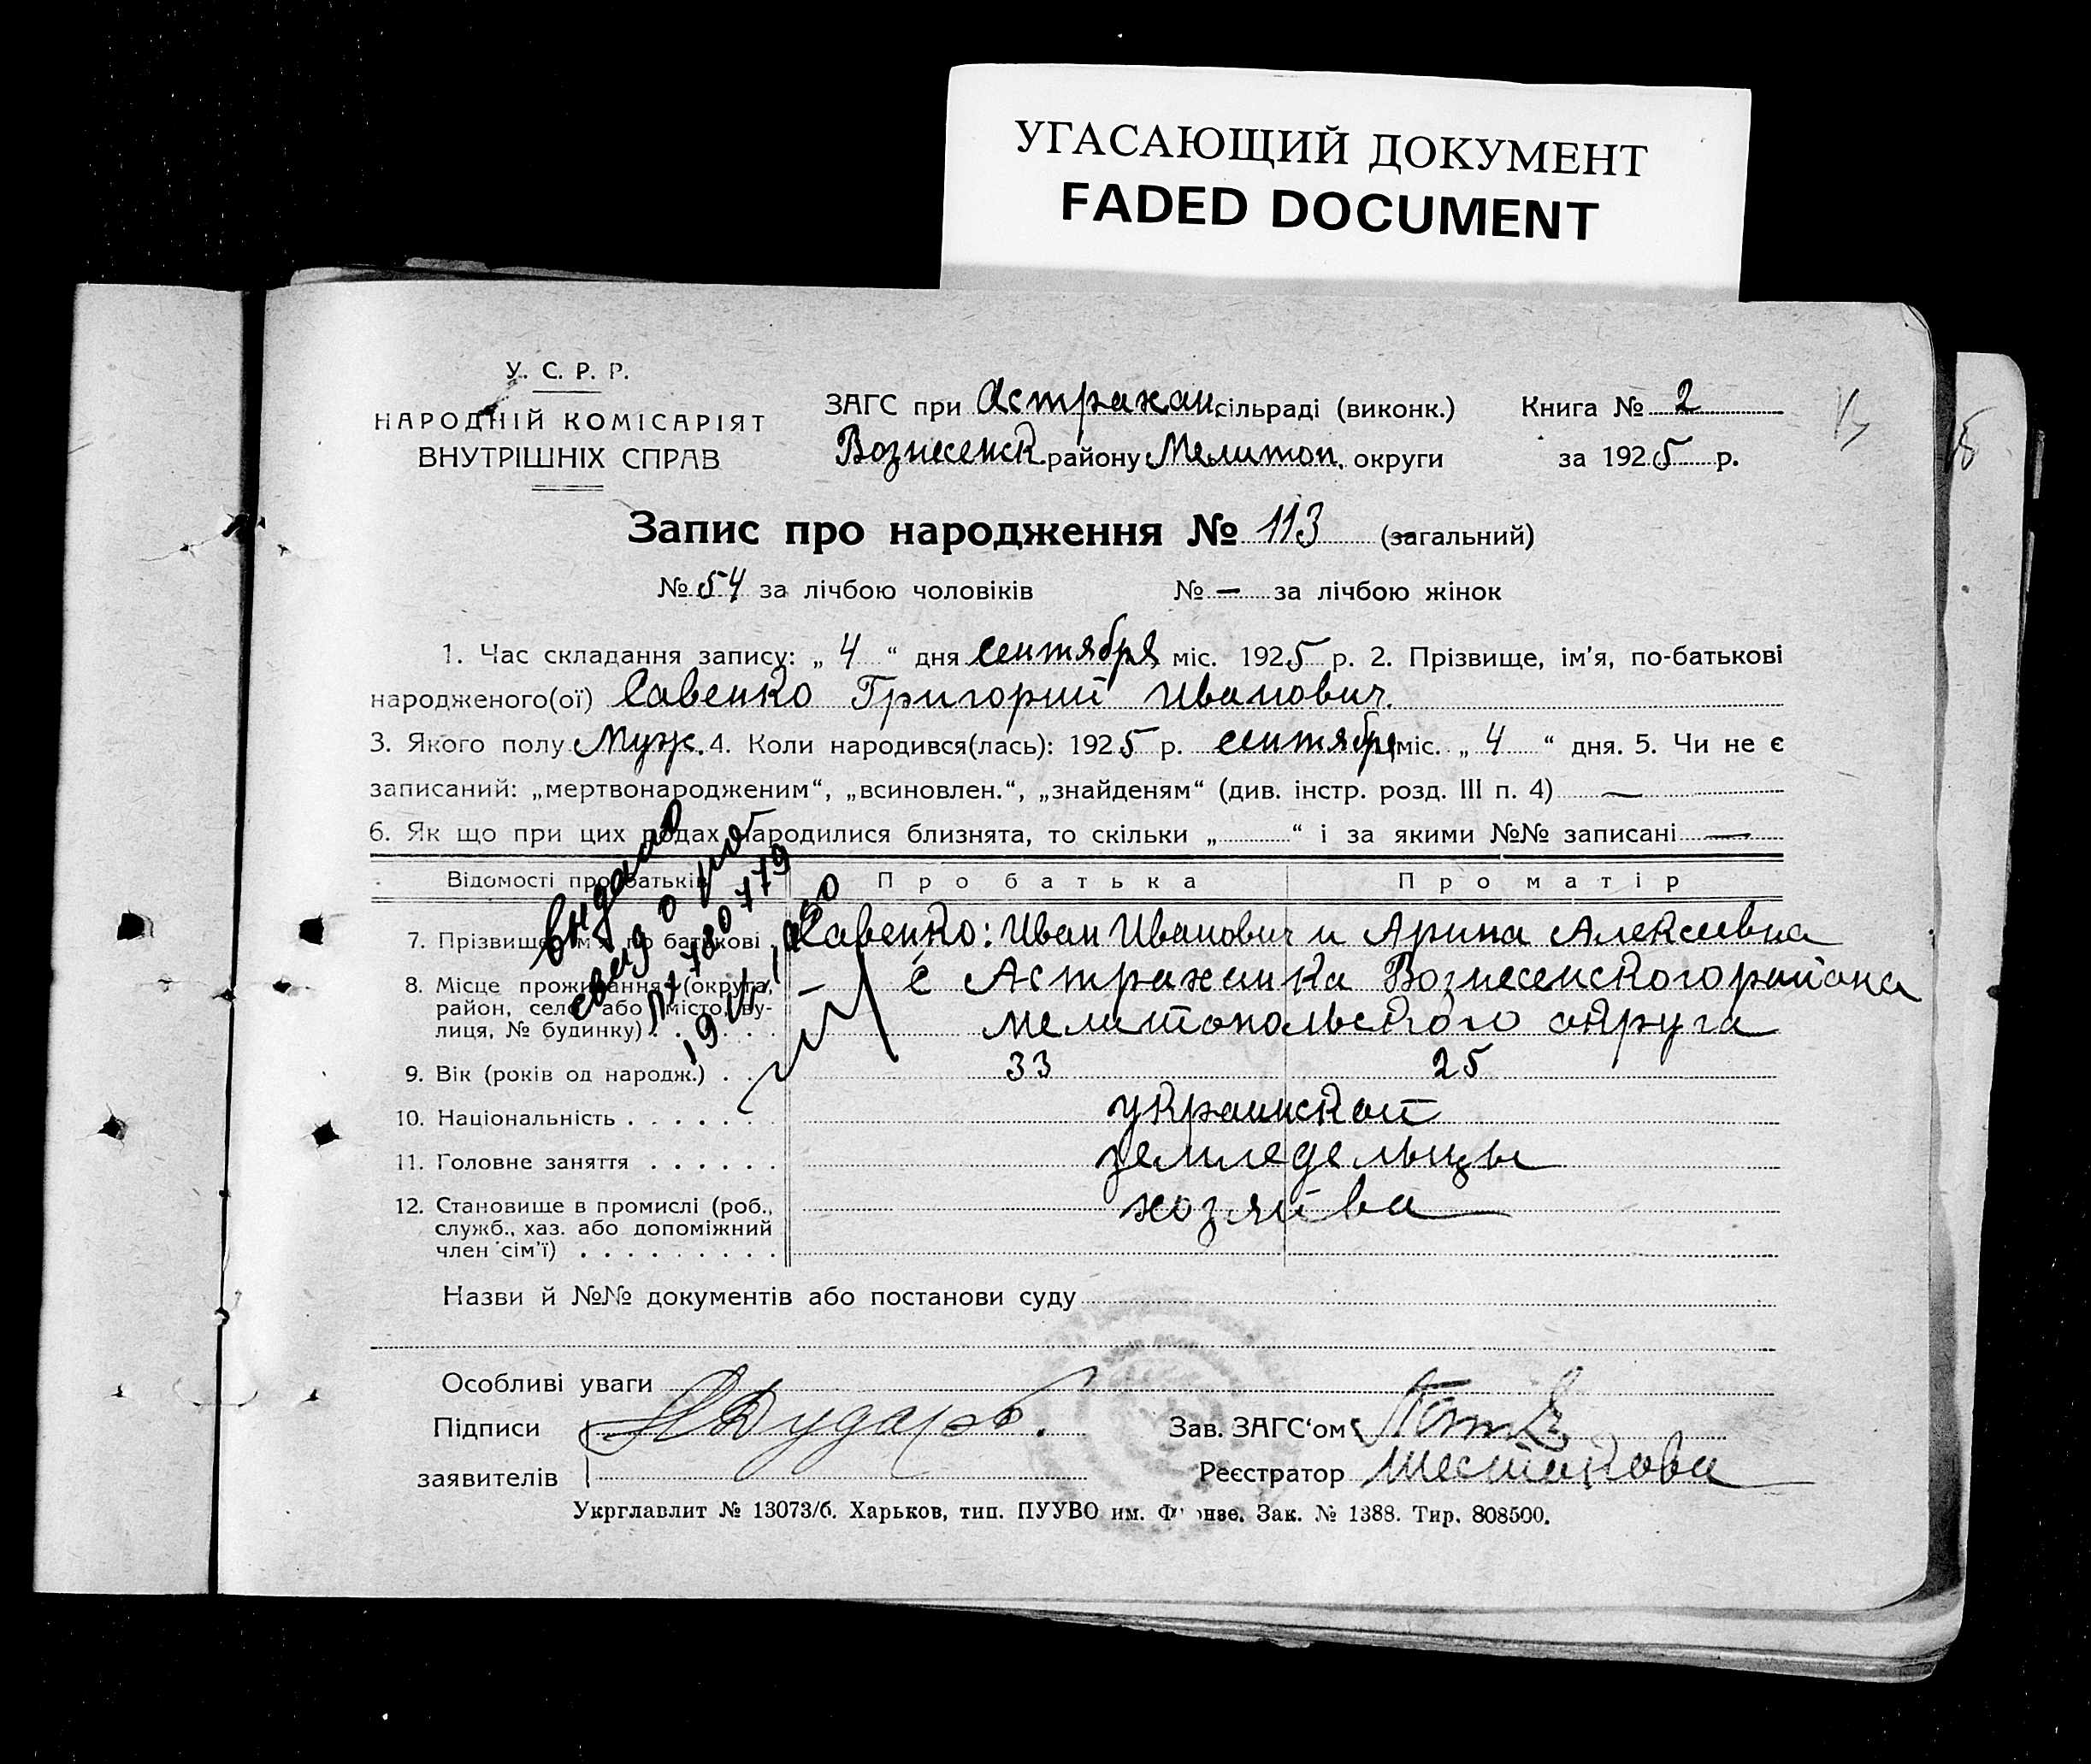 УГАСАЮЩИЙ ДОКУМЕНТ
FADED DOCUMENT
У. С. Р. Р.
НАРОДНІЙ КОМІСАРІЯТ
ВНУТРІШНІХ СПРАВ
ЗАГС при Астрахан сільраді (виконк.) Книга № 2
Вознесенск. району Мелитоп. округи за 1925 р.
Запис про народження № 113 (загальний)
№ 54 за лічбою чоловіків № — за лічбою жінок
1. Час складання запису: „ 4 “ дня сентября міс. 1925 р. 2. Прізвище, ім'я, по-батькові
народженого(ої) Савенко Григорий Иванович.
3. Якого полу Муж. 4. Коли народився(лась): 1925 р. сентября міс. „ 4 “ дня. 5. Чи не є
записаний: „мертвонародженим“, „всиновлен.“, „знайденям“ (див. інстр. розд. III п. 4) —
6. Як що при цих родах народилися близнята, то скільки „ “ і за якими №№ записані —
Відомості про батьків Про батька Про матір
7. Прізвище, ім'я, по батькові Савенко: Иван Иванович и Арина Алексеевна
8. Місце проживання (округа, — с Астраханка Вознесенского района
район, село або місто, ву-
лиця, № будинку) Мелитопольского округа
9. Вік (років од народж.) 33 25
10. Національність украинской
11. Головне заняття земледельцы
12. Становище в промислі (роб., хозяйва
служб., хаз. або допоміжний
член сім'ї)
Назви й №№ документів або постанови суду
Особливі уваги
Підписи Зав. ЗАГС'ом
заявителів Реєстратор Шестакова
Укрглавлит № 13073/б. Харьков, тип. ПУУВО им. Фрунзе. Зак. № 1388. Тир. 808500.